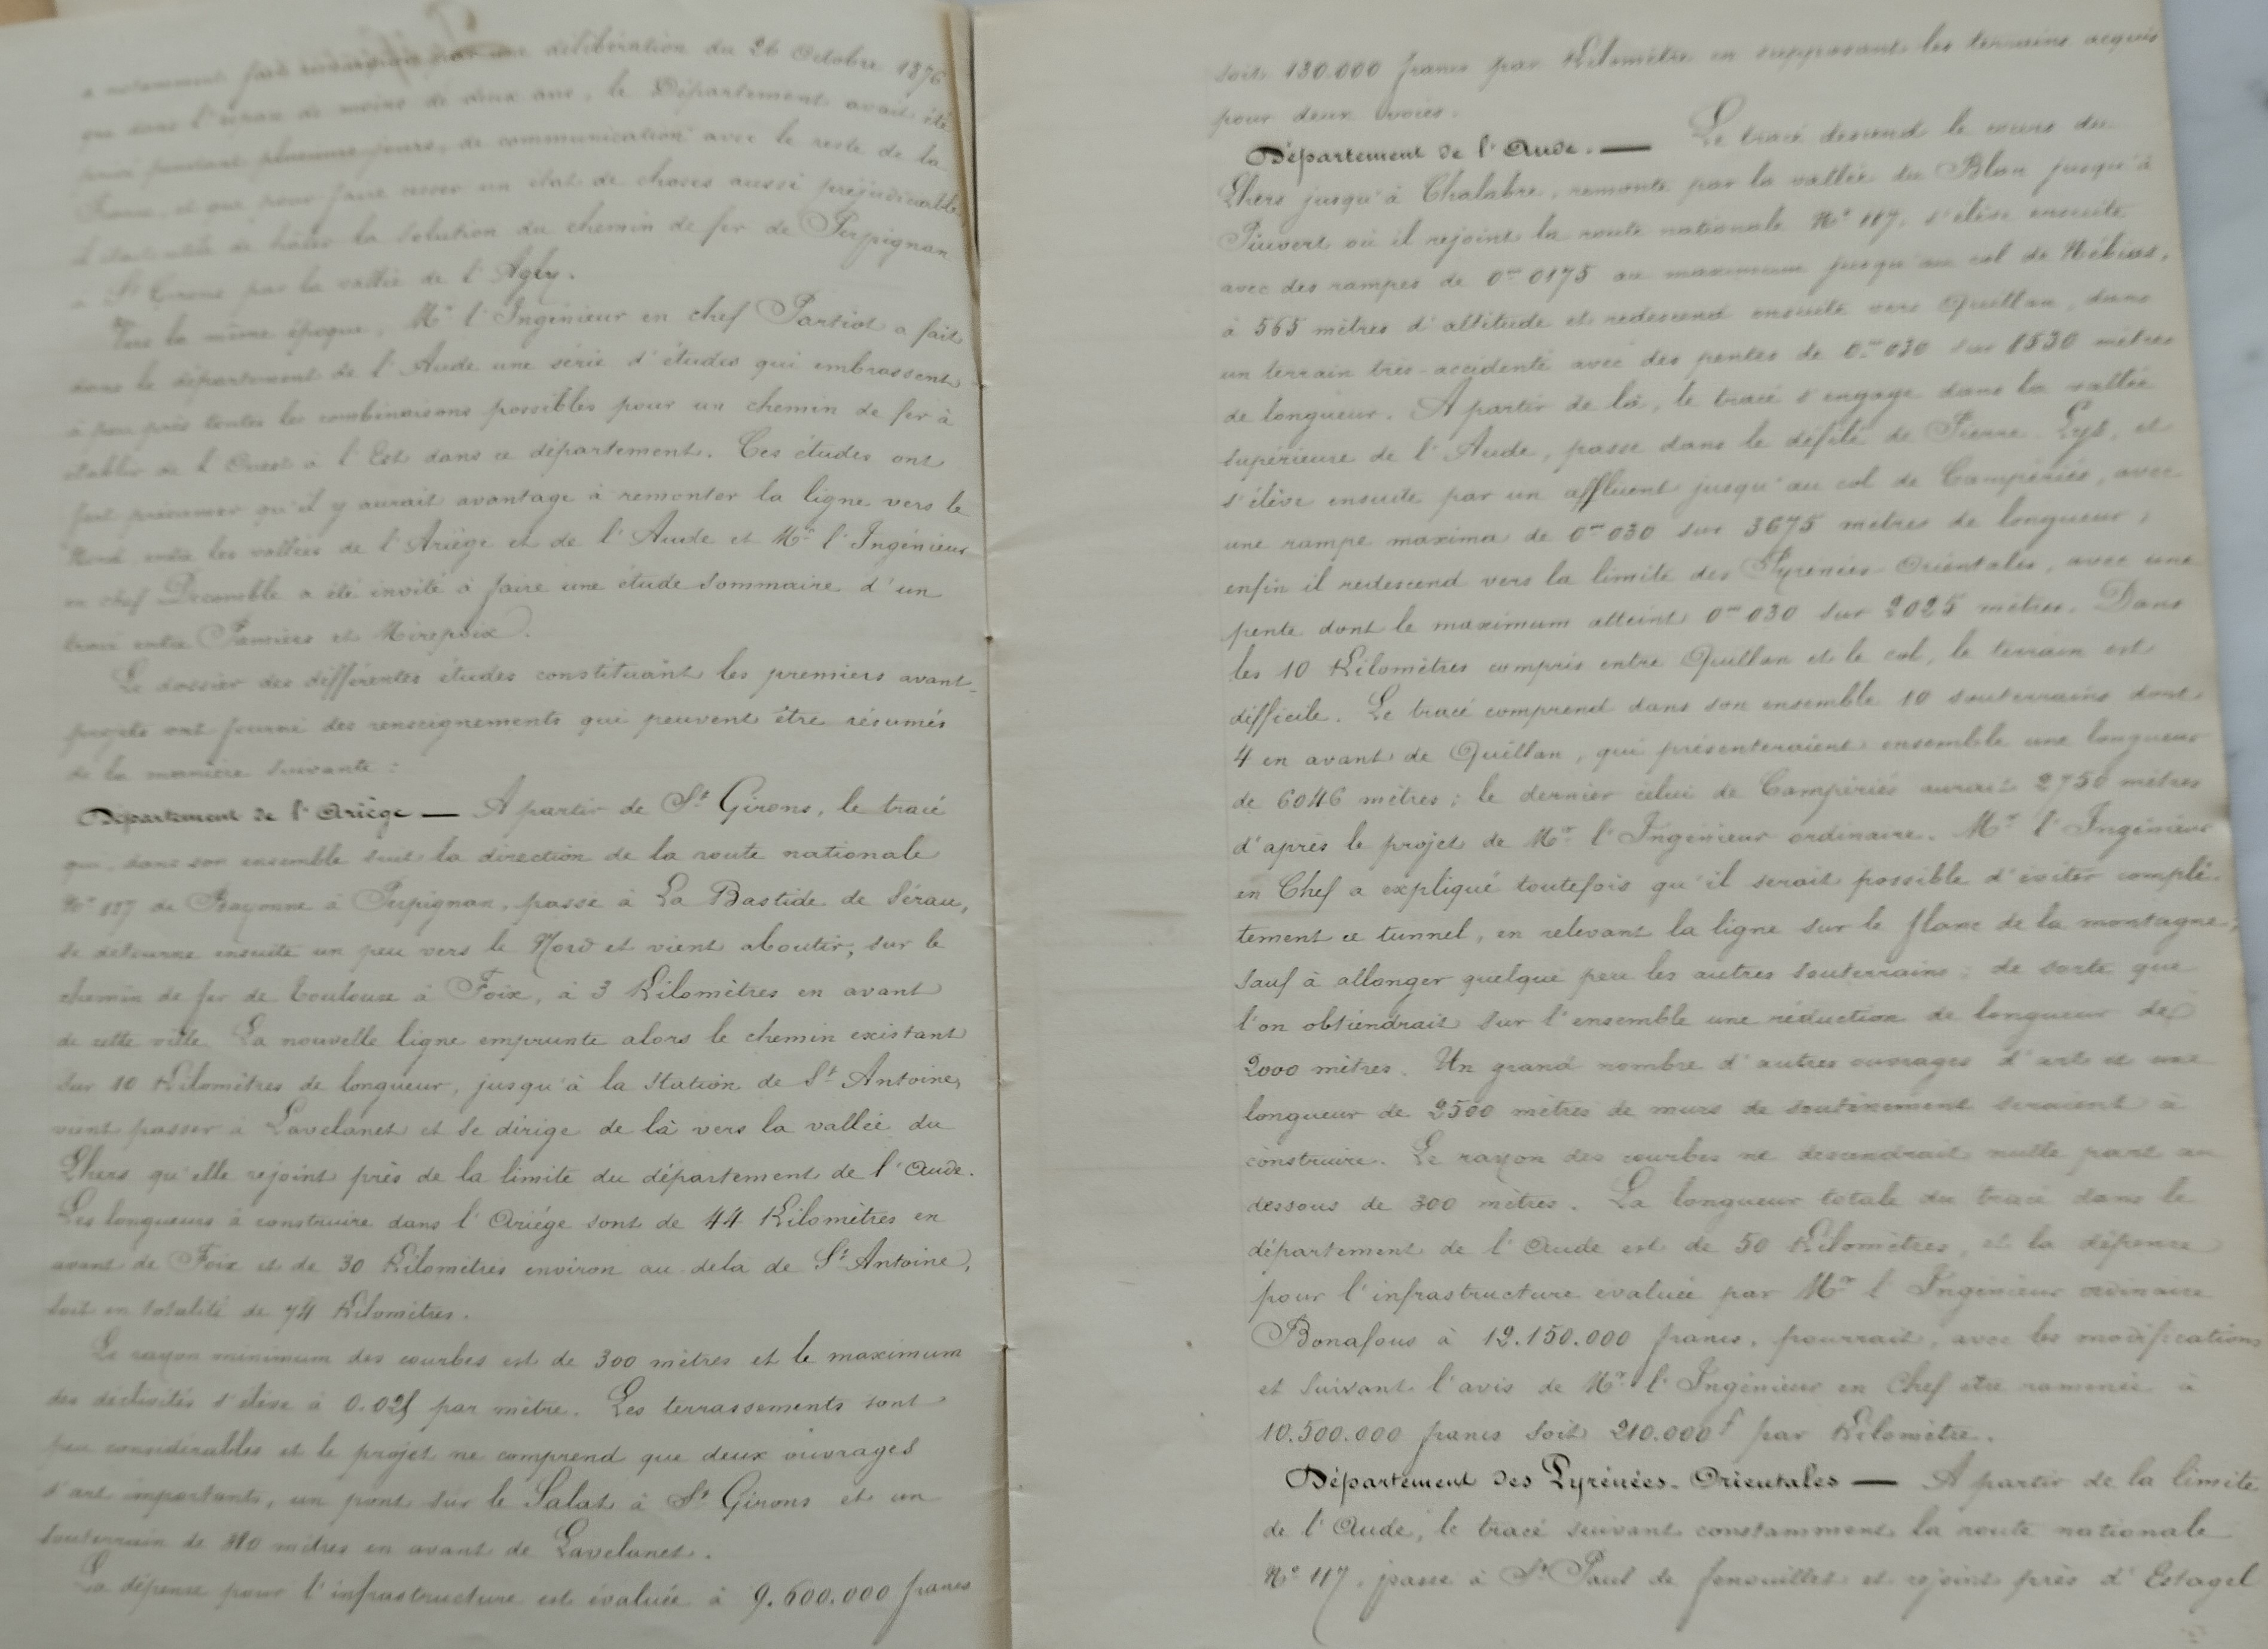 a notamment fait par une délibération du 26 Octobre 1876
que dans l'espace de moins de deux ans, le Département avait été
privé pendant plusieurs jours, de communication avec le reste de la
France, et que pour faire cesser un état de choses aussi préjudiciable,
il était utile de hâter la solution du chemin de fer de Perpignan
à St Girons par la vallée de l'Agly.
Vers la même époque, Mr l'Ingénieur en chef Partiot a fait
dans le département de l'Aude une série d'études qui embrassent
à peu près toutes les combinaisons possibles pour un chemin de fer à
établir de l'Ouest à l'Est dans ce département. Ces études ont
fait présumer qu'il y aurait avantage à remonter la ligne vers le
Nord entre les vallées de l'Ariège et de l'Aude et Mr l'Ingénieur
en chef Decomble a été invité à faire une étude sommaire d'un
tracé entre Pamiers et Mirepoix.
Le dossier des différentes études constituant les premiers avant-
projets ont fourni des renseignements qui peuvent être résumés
de la manière suivante :
Département de l'Ariège — A partir de St Girons, le tracé
qui, dans son ensemble suit la direction de la route nationale
No 117 de Bayonne à Perpignan, passe à La Bastide de Sérau,
se détourne ensuite un peu vers le Nord et vient aboutir, sur le
chemin de fer de Toulouse à Foix, à 3 Kilomètres en avant
de cette ville. La nouvelle ligne emprunte alors le chemin existant
sur 10 Kilomètres de longueur, jusqu'à la station de St Antoine,
vient passer à Lavelanet et se dirige de là vers la vallée du
Lhers qu'elle rejoint près de la limite du département de l'Aude.
Les longueurs à construire dans l'Ariège sont de 44 Kilomètres en
avant de Foix et de 30 Kilomètres environ au delà de St Antoine,
soit en totalité de 74 Kilomètres.
Le rayon minimum des courbes est de 300 mètres et le maximum
des déclivités s'élève à par mètre. Les terrassements sont
peu considérables et le projet ne comprend que deux ouvrages
d'art importants, un pont sur le Salat à St Girons et un
souterrain de mètres en avant de Lavelanet.
La dépense pour l'infrastructure est évaluée à 9.600.000 francs
soit 130.000 francs par Kilomètre en supposant les terrains acquis
pour deux voies.
Département de l'Aude. — Le tracé descend le cours du
Lhers jusqu'à Chalabre, remonte par la vallée du Blau jusqu'à
Puivert où il rejoint la route nationale No 117, s'élève ensuite
avec des rampes de 0m 0175 au maximum jusqu'au col de Nébias,
à 565 mètres d'altitude et redescend ensuite vers Quillan, dans
un terrain très-accidenté avec des pentes de 0m 030 sur 8530 mètres
de longueur. A partir de là, le tracé s'engage dans la vallée
supérieure de l'Aude, passe dans le défilé de Pierre-Lys, et
s'élève ensuite par un affluent jusqu'au col de Campériès, avec
une rampe maxima de 0m 030 sur 3675 mètres de longueur ;
enfin il redescend vers la limite des Pyrénées-Orientales, avec une
pente dont le maximum atteint 0m 030 sur 2025 mètres. Dans
les 10 Kilomètres compris entre Quillan et le col, le terrain est
difficile. Le tracé comprend dans son ensemble 10 souterrains dont
4 en avant de Quillan, qui présenteraient ensemble une longueur
de 6046 mètres ; le dernier celui de Campériès aurait 2750 mètres
d'après le projet de Mr l'Ingénieur ordinaire. Mr l'Ingénieur
en Chef a expliqué toutefois qu'il serait possible d'éviter complè-
tement ce tunnel, en relevant la ligne sur le flanc de la montagne,
sauf à allonger quelque peu les autres souterrains ; de sorte que
l'on obtiendrait sur l'ensemble une réduction de longueur de
2000 mètres. Un grand nombre d'autres ouvrages d'art et une
longueur de 2500 mètres de murs de soutènement seraient à
construire. Le rayon des courbes ne descendrait nulle part au
dessous de 300 mètres. La longueur totale du tracé dans le
département de l'Aude est de 50 Kilomètres et la dépense
pour l'infrastructure évaluée par Mr l'Ingénieur ordinaire
Bonafous à 12.150.000 francs, pourrait, avec les modifications
et suivant l'avis de Mr l'Ingénieur en Chef être ramenée à
10.500.000 francs soit 210.000f par Kilomètre.
Département des Pyrénées-Orientales — A partir de la limite
de l'Aude, le tracé suivant constamment la route nationale
No 117, passe à St Paul de fenouillet et rejoint près d'Estagel